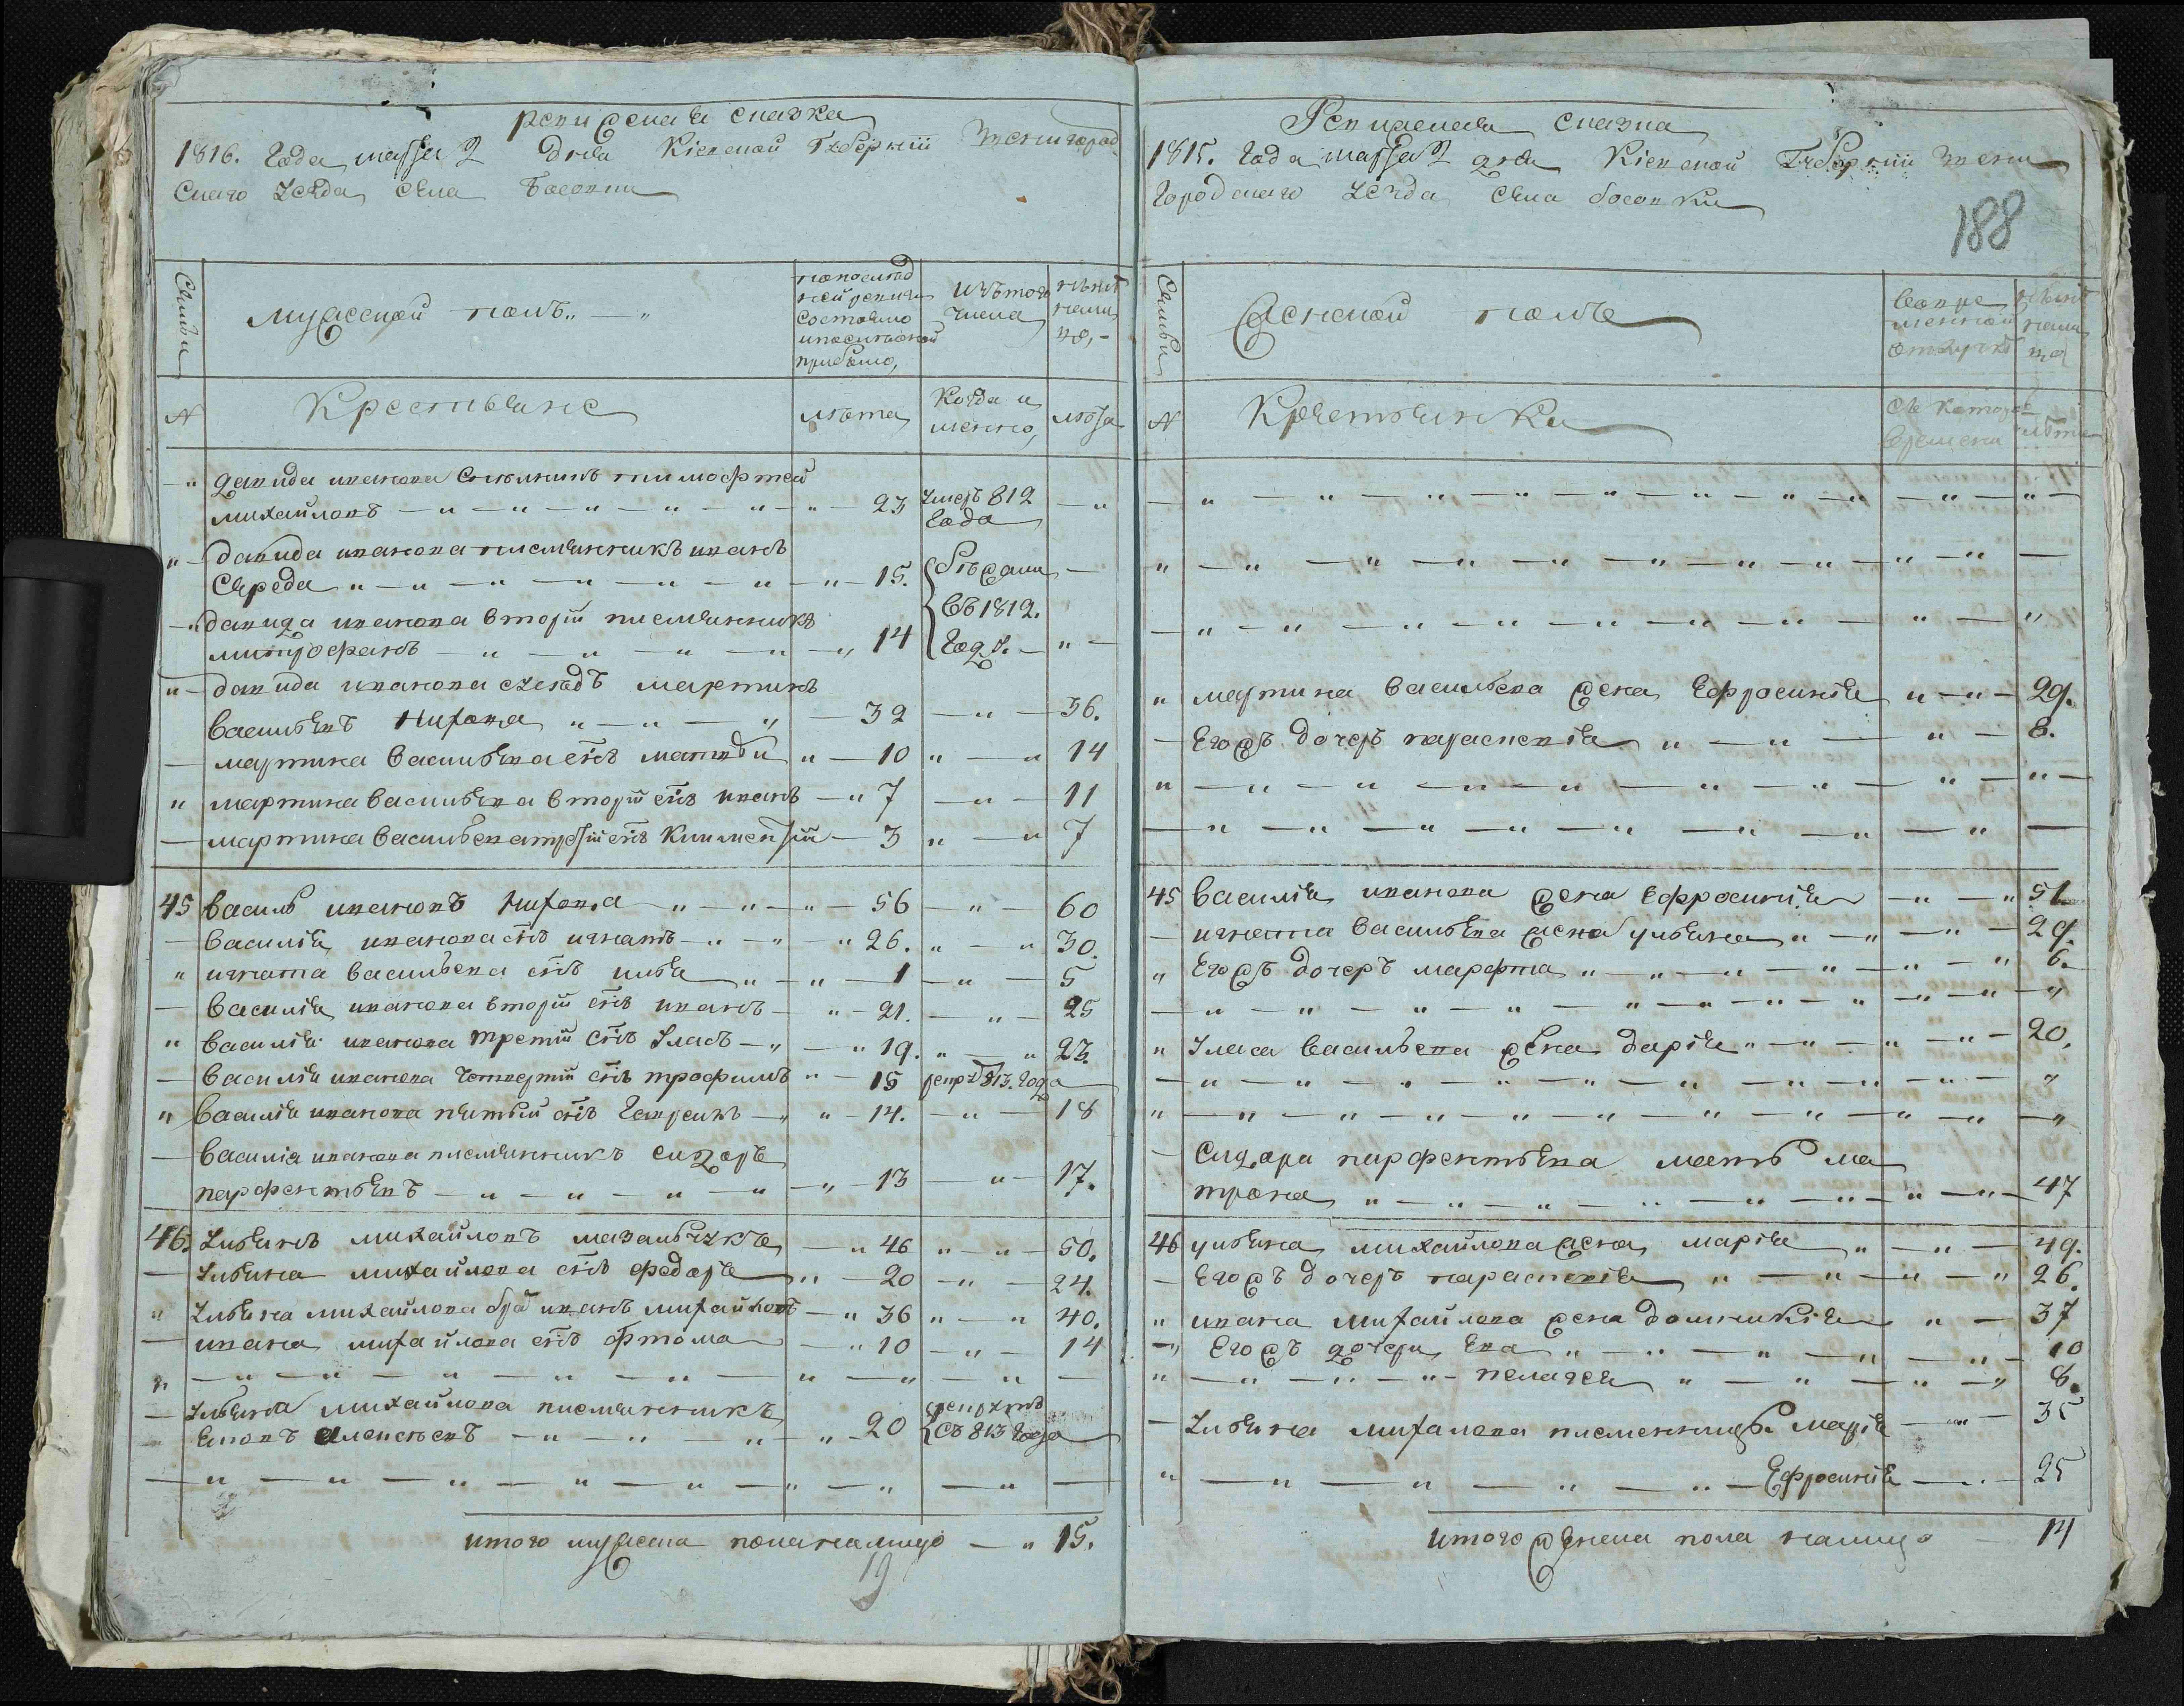 ревижская сказка
1816. Года марта 2 дня Кіевской Губерніи Звенигород
Скаго Уезда, села Босовки
Семьи
Мужеской полъ
По последней ревизіи состояло и после оной прибыло,
Изътого числа
ныне налицо,
№
Крестьяне
лѣта
Когда именно,
лѣта
" Давида иванова Скольникъ тимофтей
михайловъ — 23 Умеръ 812 Года "
" Давида иванова племянникъ иванъ
Середа — 15. бѣжали
" Давида иванова вторій племянникъ
митрофанъ — 14 Въ 1812. Году. "
" Давида иванова сусѣдъ мартинъ
васильевъ Нихота — 32 " 36.
— мартина васильева снъ матвѣй " 10 " 14
" мартина васильева вторій снъ иванъ " 7 " 11
— мартина васильева третій снъ Климентій — 3 " 7
45 василь ивановъ Нихота — 56 " 60
— василія иванова снъ игнатъ — 26. " 30.
" игната васильева снъ илья — 1 " 5
— василія иванова вторій снъ иванъ — 21. " 25
" василія иванова третій снъ Уласъ — 19. " 23.
— василія иванова четвертій снъ трофимъ — 15 рекрутъ 813. Года
" василія иванова пятый снъ Гаврилъ — 14. " 18
— василія иванова племянникъ сидоръ
парфентьевъ — 13 " 17.
46. Ульянъ михайловъ мазальчукъ — 46 " 50.
— Ульяна михайлова снъ федоръ — 20 " 24.
" Ульяна михайлова братъ иванъ михайловъ — 36 " 40.
— ивана михайлова снъ фтома — 10 " 14
— Ульяна михайлова племянникъ
алексѣевъ — 20 рекрутъ Съ 813 Года
итого мужеска пола налицо — 15.
19
Ревижская сказка
1815. Года марта 2 дня Кіевской Губерніи Звени
Городскаго Уезда, села босовки
188
Семьи
Женской полъ
Во временной отлучке
ныне налицо
№
Крестьянки
Съ котораго времени
лѣта
" мартина васильева жена Ефросинія " 29.
— Егожъ дочеръ параскевія " 8.
45 василія иванова жена Ефросинія " 51
— игната васильева жена ульяна " 29.
" Егожъ дочеръ марфта " 6.
" Уласа васильева жена дарія " 20.
— Сидора парфентьева мать ма
трона " 47
46 ульяна михайлова жена марія " 49.
— Егожъ дочеръ параскевія " 26.
" ивана михайлова жена домникія " 37
— Егожъ дочери Ева " 10
" пелагея " 8.
— Ульяна михалова племенница марія " 35
" Ефросинія — 25
итого женска пола налицо — 14